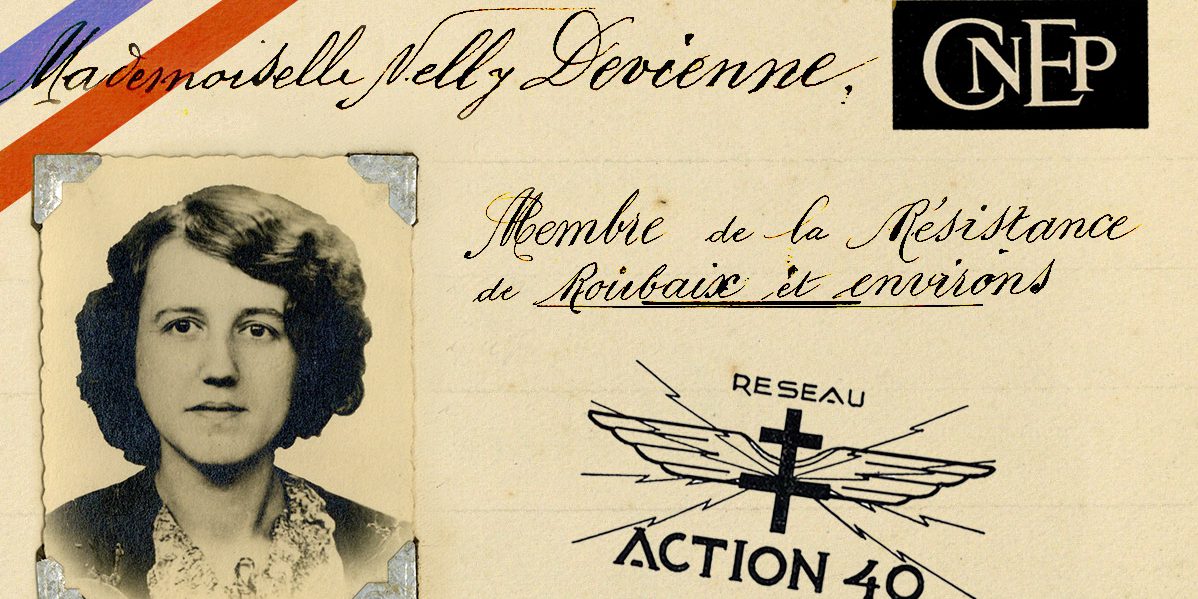 Mademoiselle Nelly Devienne,
CNEP
Membre de la Résistance
de Roubaix et environs
RESEAU
ACTION 40